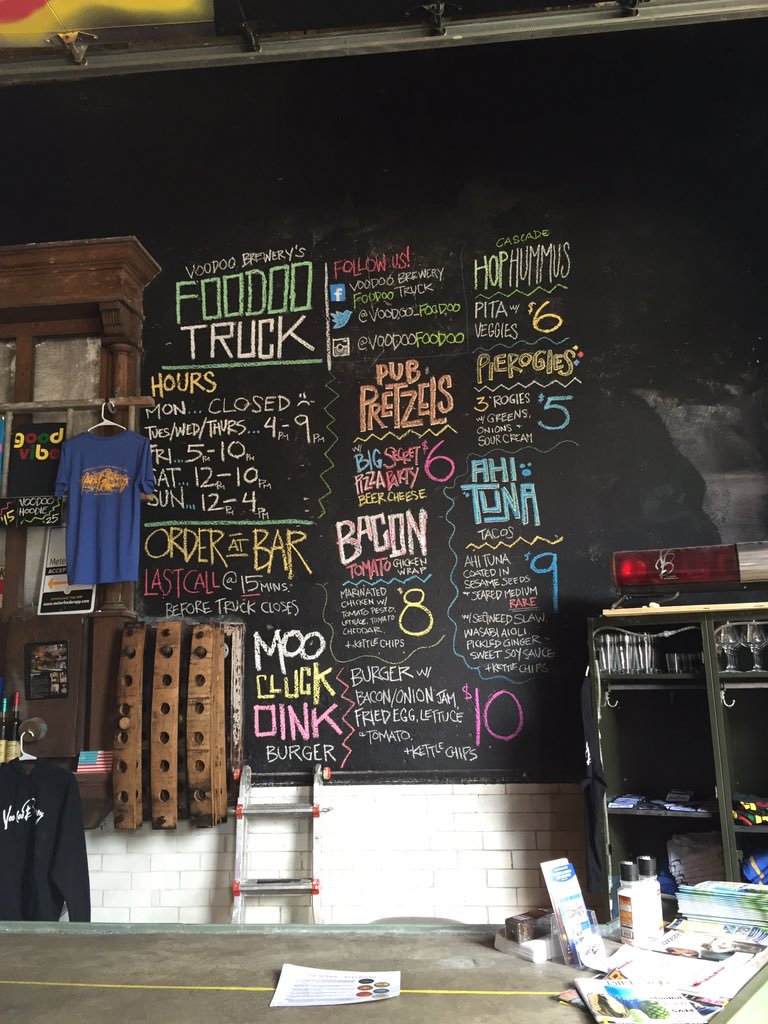 VOODOO BREWERY'S
FOODOO
TRUCK
HOURS
MON... CLOSED
TUES/WED/THURS... 4PM-9PM
FRI... 5PM-10PM
SAT... 12PM-10PM
SUN... 12PM-4PM
ORDER AT BAR
LAST CALL @ 15 MINS.
BEFORE TRUCK CLOSES
MOO
CLUCK
OINK
BURGER
FOLLOW US!
VOODOO BREWERY
FOODOO TRUCK
@VOODOO_FOODOO
@VOODOOFOODOO
PUB
PRETZELS
W/ BIG SECRET
PIZZA PARTY
BEER CHEESE
$6
BACON
TOMATO CHICKEN
WRAP
MARINATED
CHICKEN W/
TOMATO PESTO,
LETTUCE, TOMATO
CHEDDAR.
+ KETTLE CHIPS
$8
BURGER W/
BACON/ONION JAM,
FRIED EGG, LETTUCE
+ TOMATO.
+KETTLE CHIPS
$10
CASCADE
HOP HUMMUS
PITA W/
VEGGIES
$6
PIEROGIES
3 'ROGIES
W/ GREENS,
ONIONS +
SOUR CREAM
$5
AHI
TUNA
TACOS
AHI TUNA
COATED IN
SESAME SEEDS
SEARED MEDIUM
RARE
$9
SLAW,
WASABI AIOLI
PICKLED GINGER +
SWEET SOY SAUCE
+KETTLE CHIPS
good
vibe
VOODOO
HOODIE
15
25
Mete
ACCEP
www.meterfeederapp.com